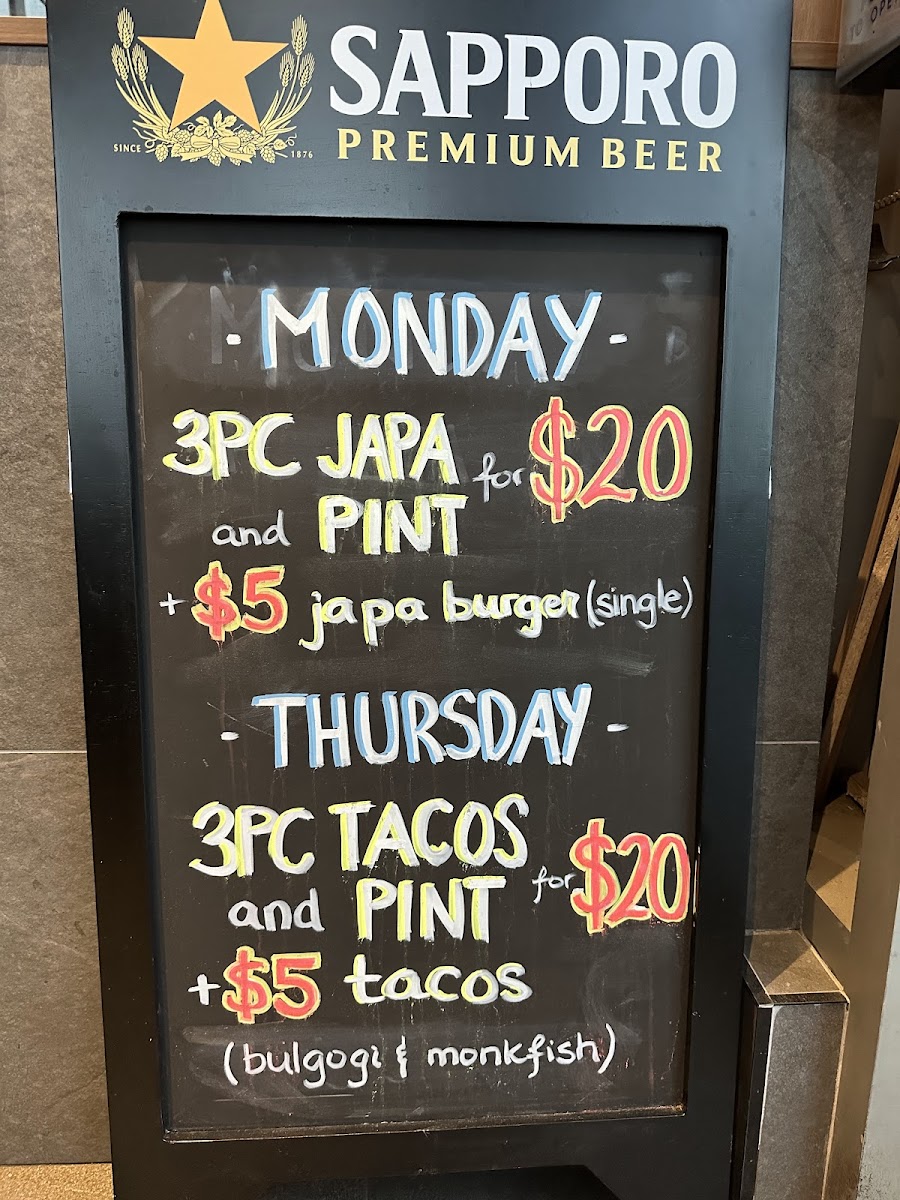 SAPPORO
PREMIUM BEER
SINCE 1876
- MONDAY -
3PC JAPA for $20
and PINT
+ $5 japa burger (single)
- THURSDAY -
3PC TACOS
and PINT for $20
+ $5 tacos
(bulgogi & monkfish)